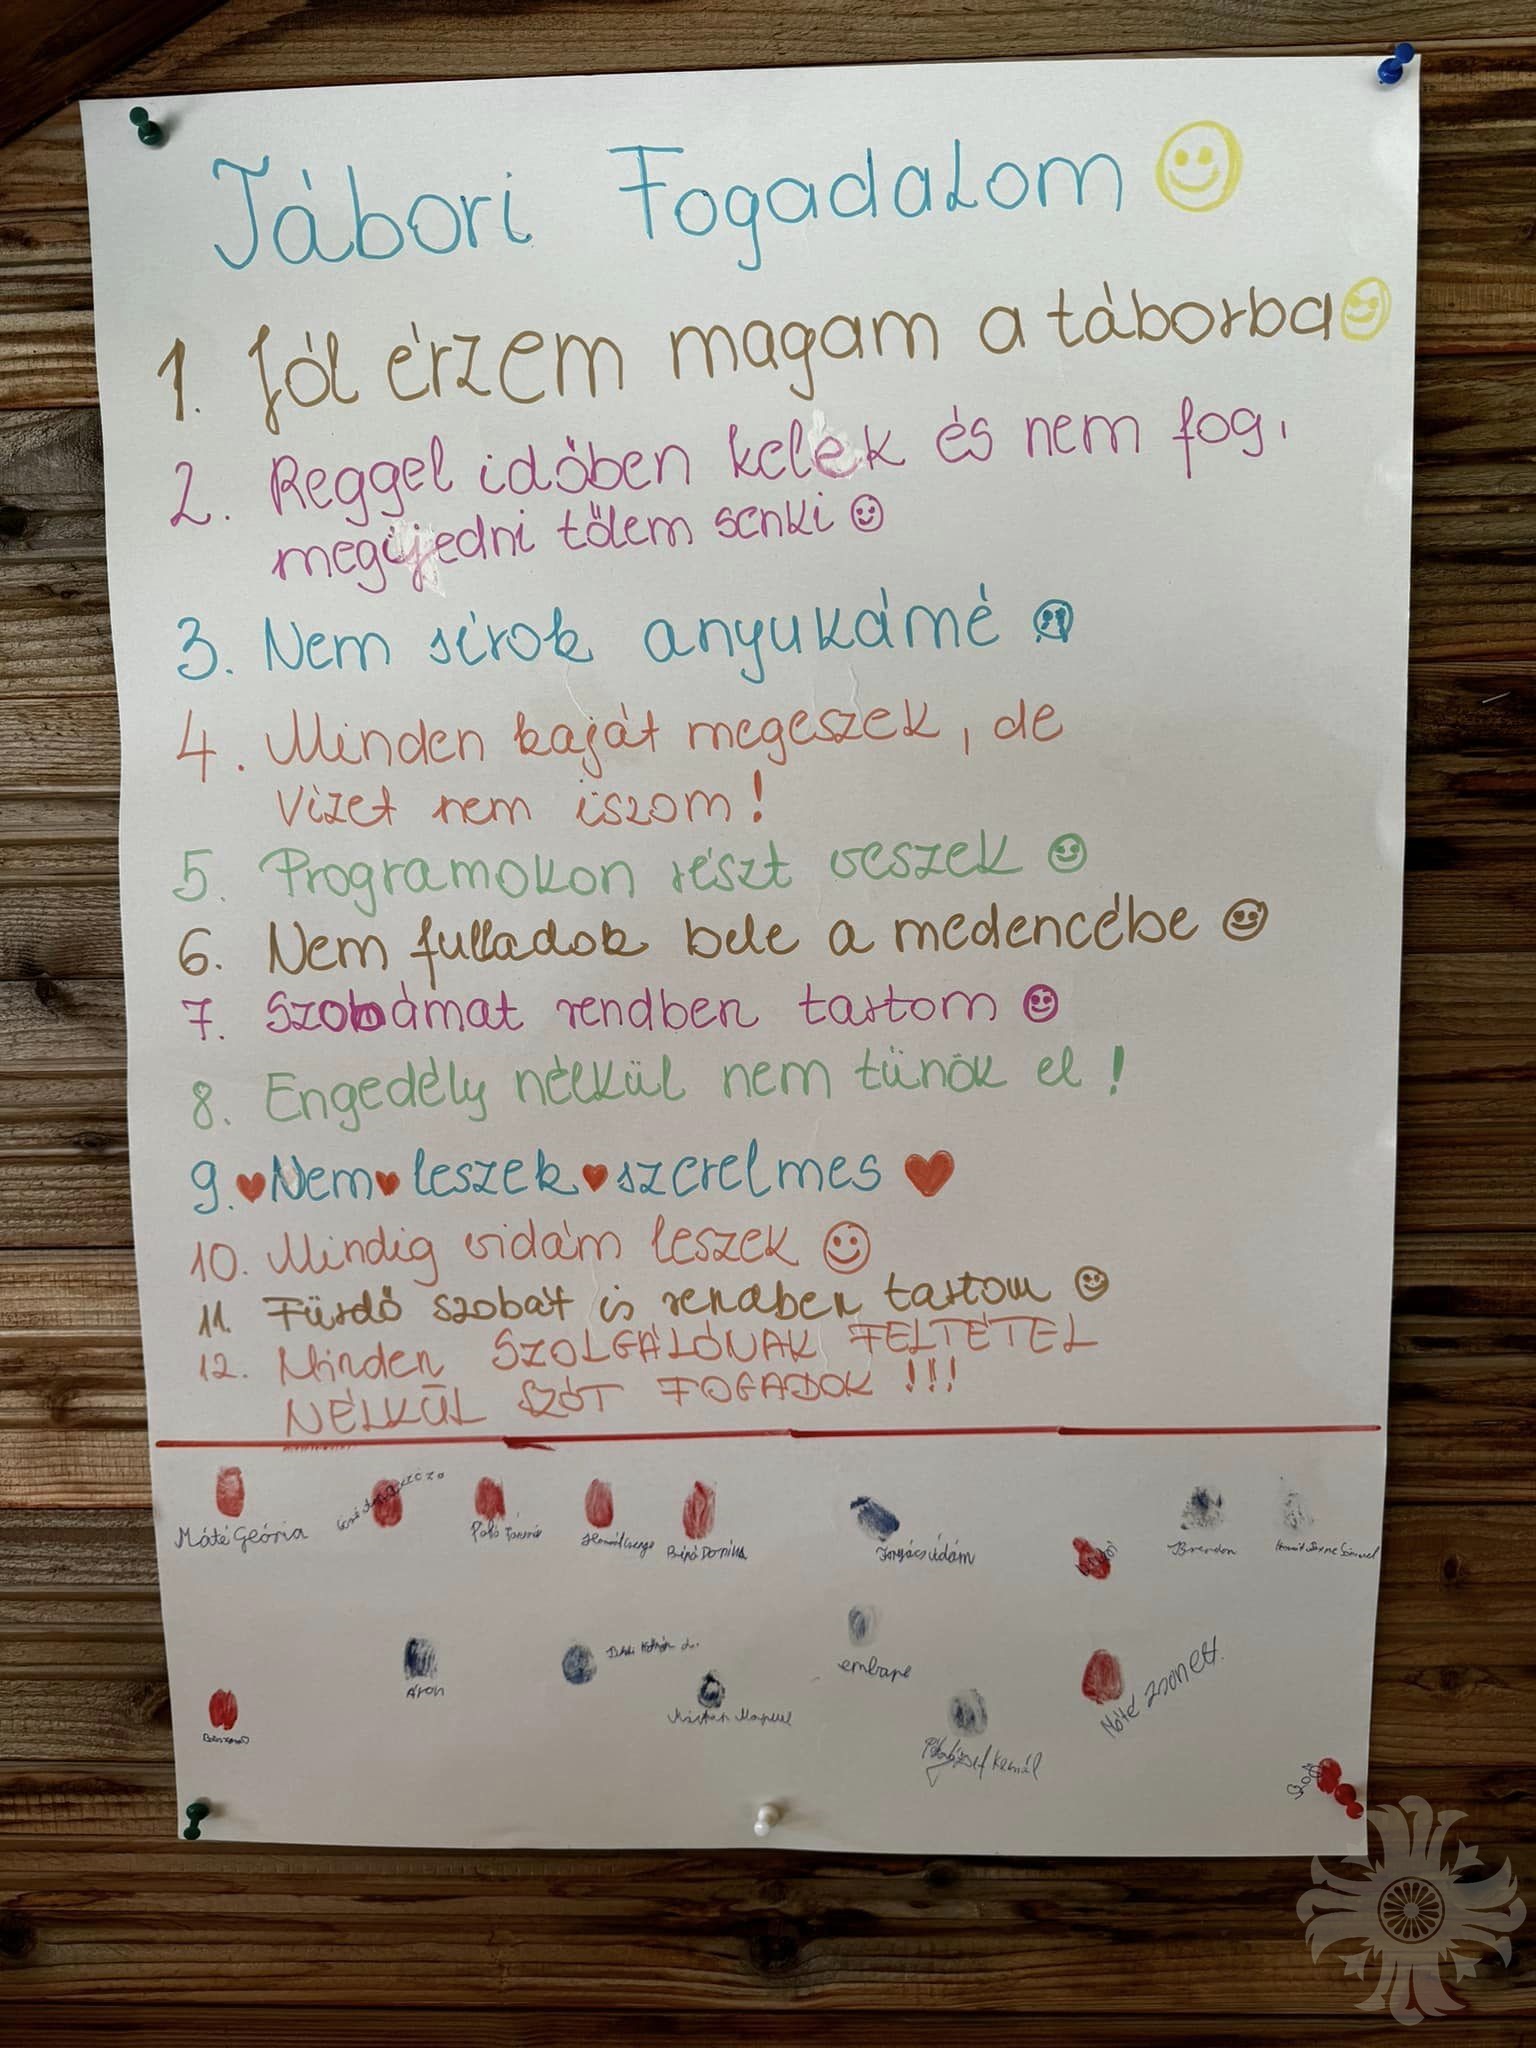 Tábori Fogadalom
1. Jól érzem magam a táborba
2. Reggel időben kelek és nem fog,
megijedni tőlem senki
3. Nem sírok anyukámé
4. Minden kaját megeszek, de
vizet nem iszom!
5. Programokon részt veszek
6. Nem fulladok bele a medencébe
7. Szobámat rendben tartom
8. Engedély nélkül nem tünök el!
9. Nem leszek szerelmes
10. Mindig vidám leszek
11. Fürdő szobát is rendben tartom
12. Minden SZOLGÁLÓNAK FELTÉTEL
NÉLKÜL SZÓT FOGADOK !!!
Máté Geória
Forgács Ádám
Brendon
Áron
embape
Máté Zsanett